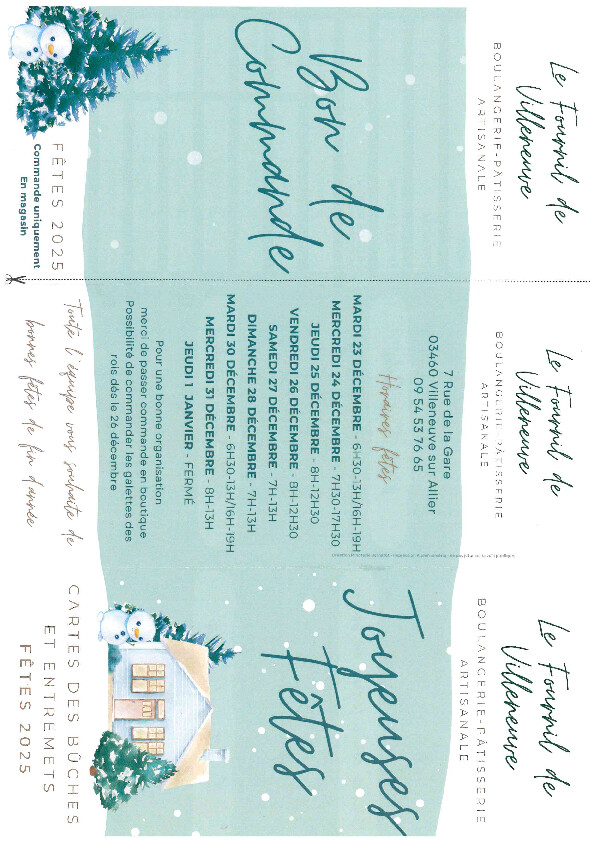 Le Fournil de
Villeneuve
BOULANGERIE-PÂTISSERIE
ARTISANALE
Bon de
Commande
FÊTES 2025
Commande uniquement
En magasin
Le Fournil de
Villeneuve
BOULANGERIE-PÂTISSERIE
ARTISANALE
7 Rue de la Gare
03460 Villeneuve sur Allier
09 54 53 76 65
Horaires fêtes
MARDI 23 DÉCEMBRE - 6H30-13H/16H-19H
MERCREDI 24 DÉCEMBRE - 7H30-17H30
JEUDI 25 DÉCEMBRE - 8H-12H30
VENDREDI 26 DÉCEMBRE - 8H-12H30
SAMEDI 27 DÉCEMBRE - 7H-13H
DIMANCHE 28 DÉCEMBRE - 7H-13H
MARDI 30 DÉCEMBRE - 6H30-13H/16H-19H
MERCREDI 31 DÉCEMBRE - 8H-13H
JEUDI 1 JANVIER - FERMÉ
Pour une bonne organisation
merci de passer commande en boutique
Possibilité de commander les galettes des
rois dès le 26 décembre
Toute l'équipe vous souhaite de
bonnes fêtes de fin d'année
Le Fournil de
Villeneuve
BOULANGERIE-PÂTISSERIE
ARTISANALE
Joyeuses
Fêtes
CARTES DES BÛCHES
ET ENTREMETS
FÊTES 2025